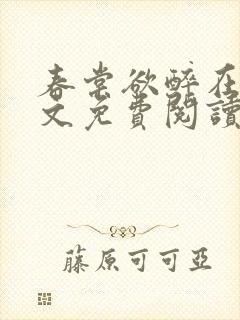 春棠欲醉在
文免費閱讀
藤原可可亞